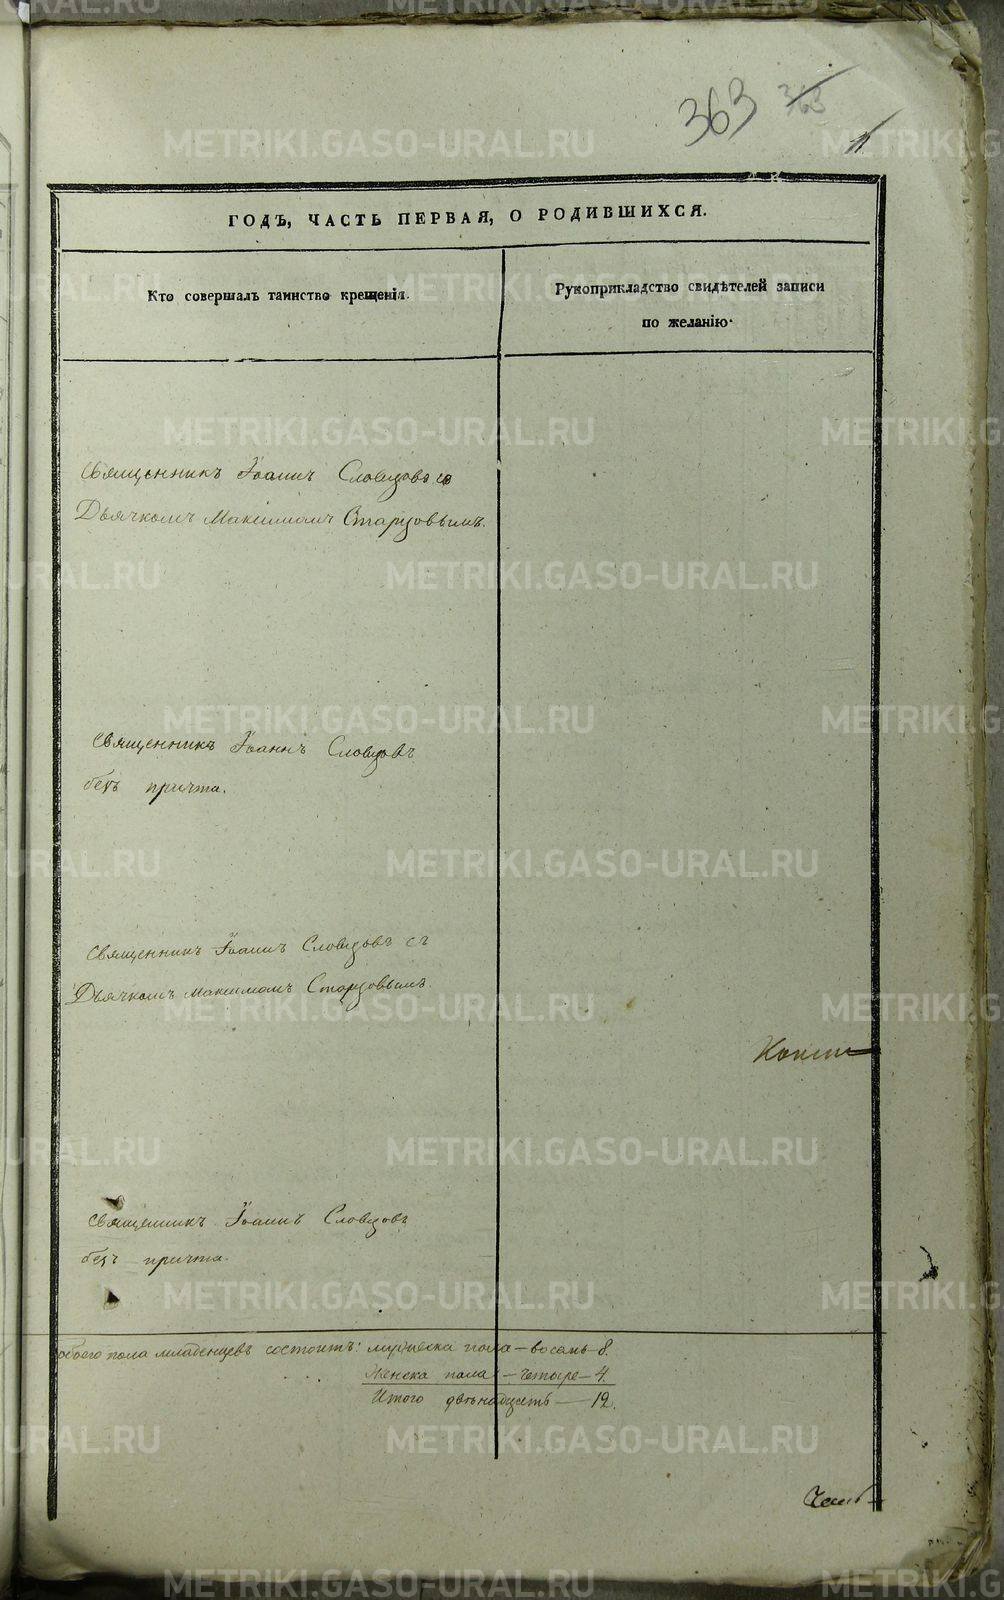 363 363
11
ГОДЪ, ЧАСТЬ ПЕРВАЯ, О РОДИВШИХСЯ.
Кто совершалъ таинство крещенія.
Рукоприкладство свидѣтелей записи
по желанію.
Священникъ Іоаннъ Словцовъ съ
Дьячкомъ Максимомъ Старцовымъ.
Священникъ Іоаннъ Словцовъ
безъ причта.
Священникъ Іоаннъ Словцовъ съ
Дьячкомъ Максимомъ Старцовымъ
Священникъ Іоаннъ Словцовъ
безъ причта.
обоего пола младенцевъ состоитъ: мужеска пола — восемь — 8.
Женска пола — четыре — 4.
Итого двѣнадцать — 12.
METRIKI.GASO-URAL.RU